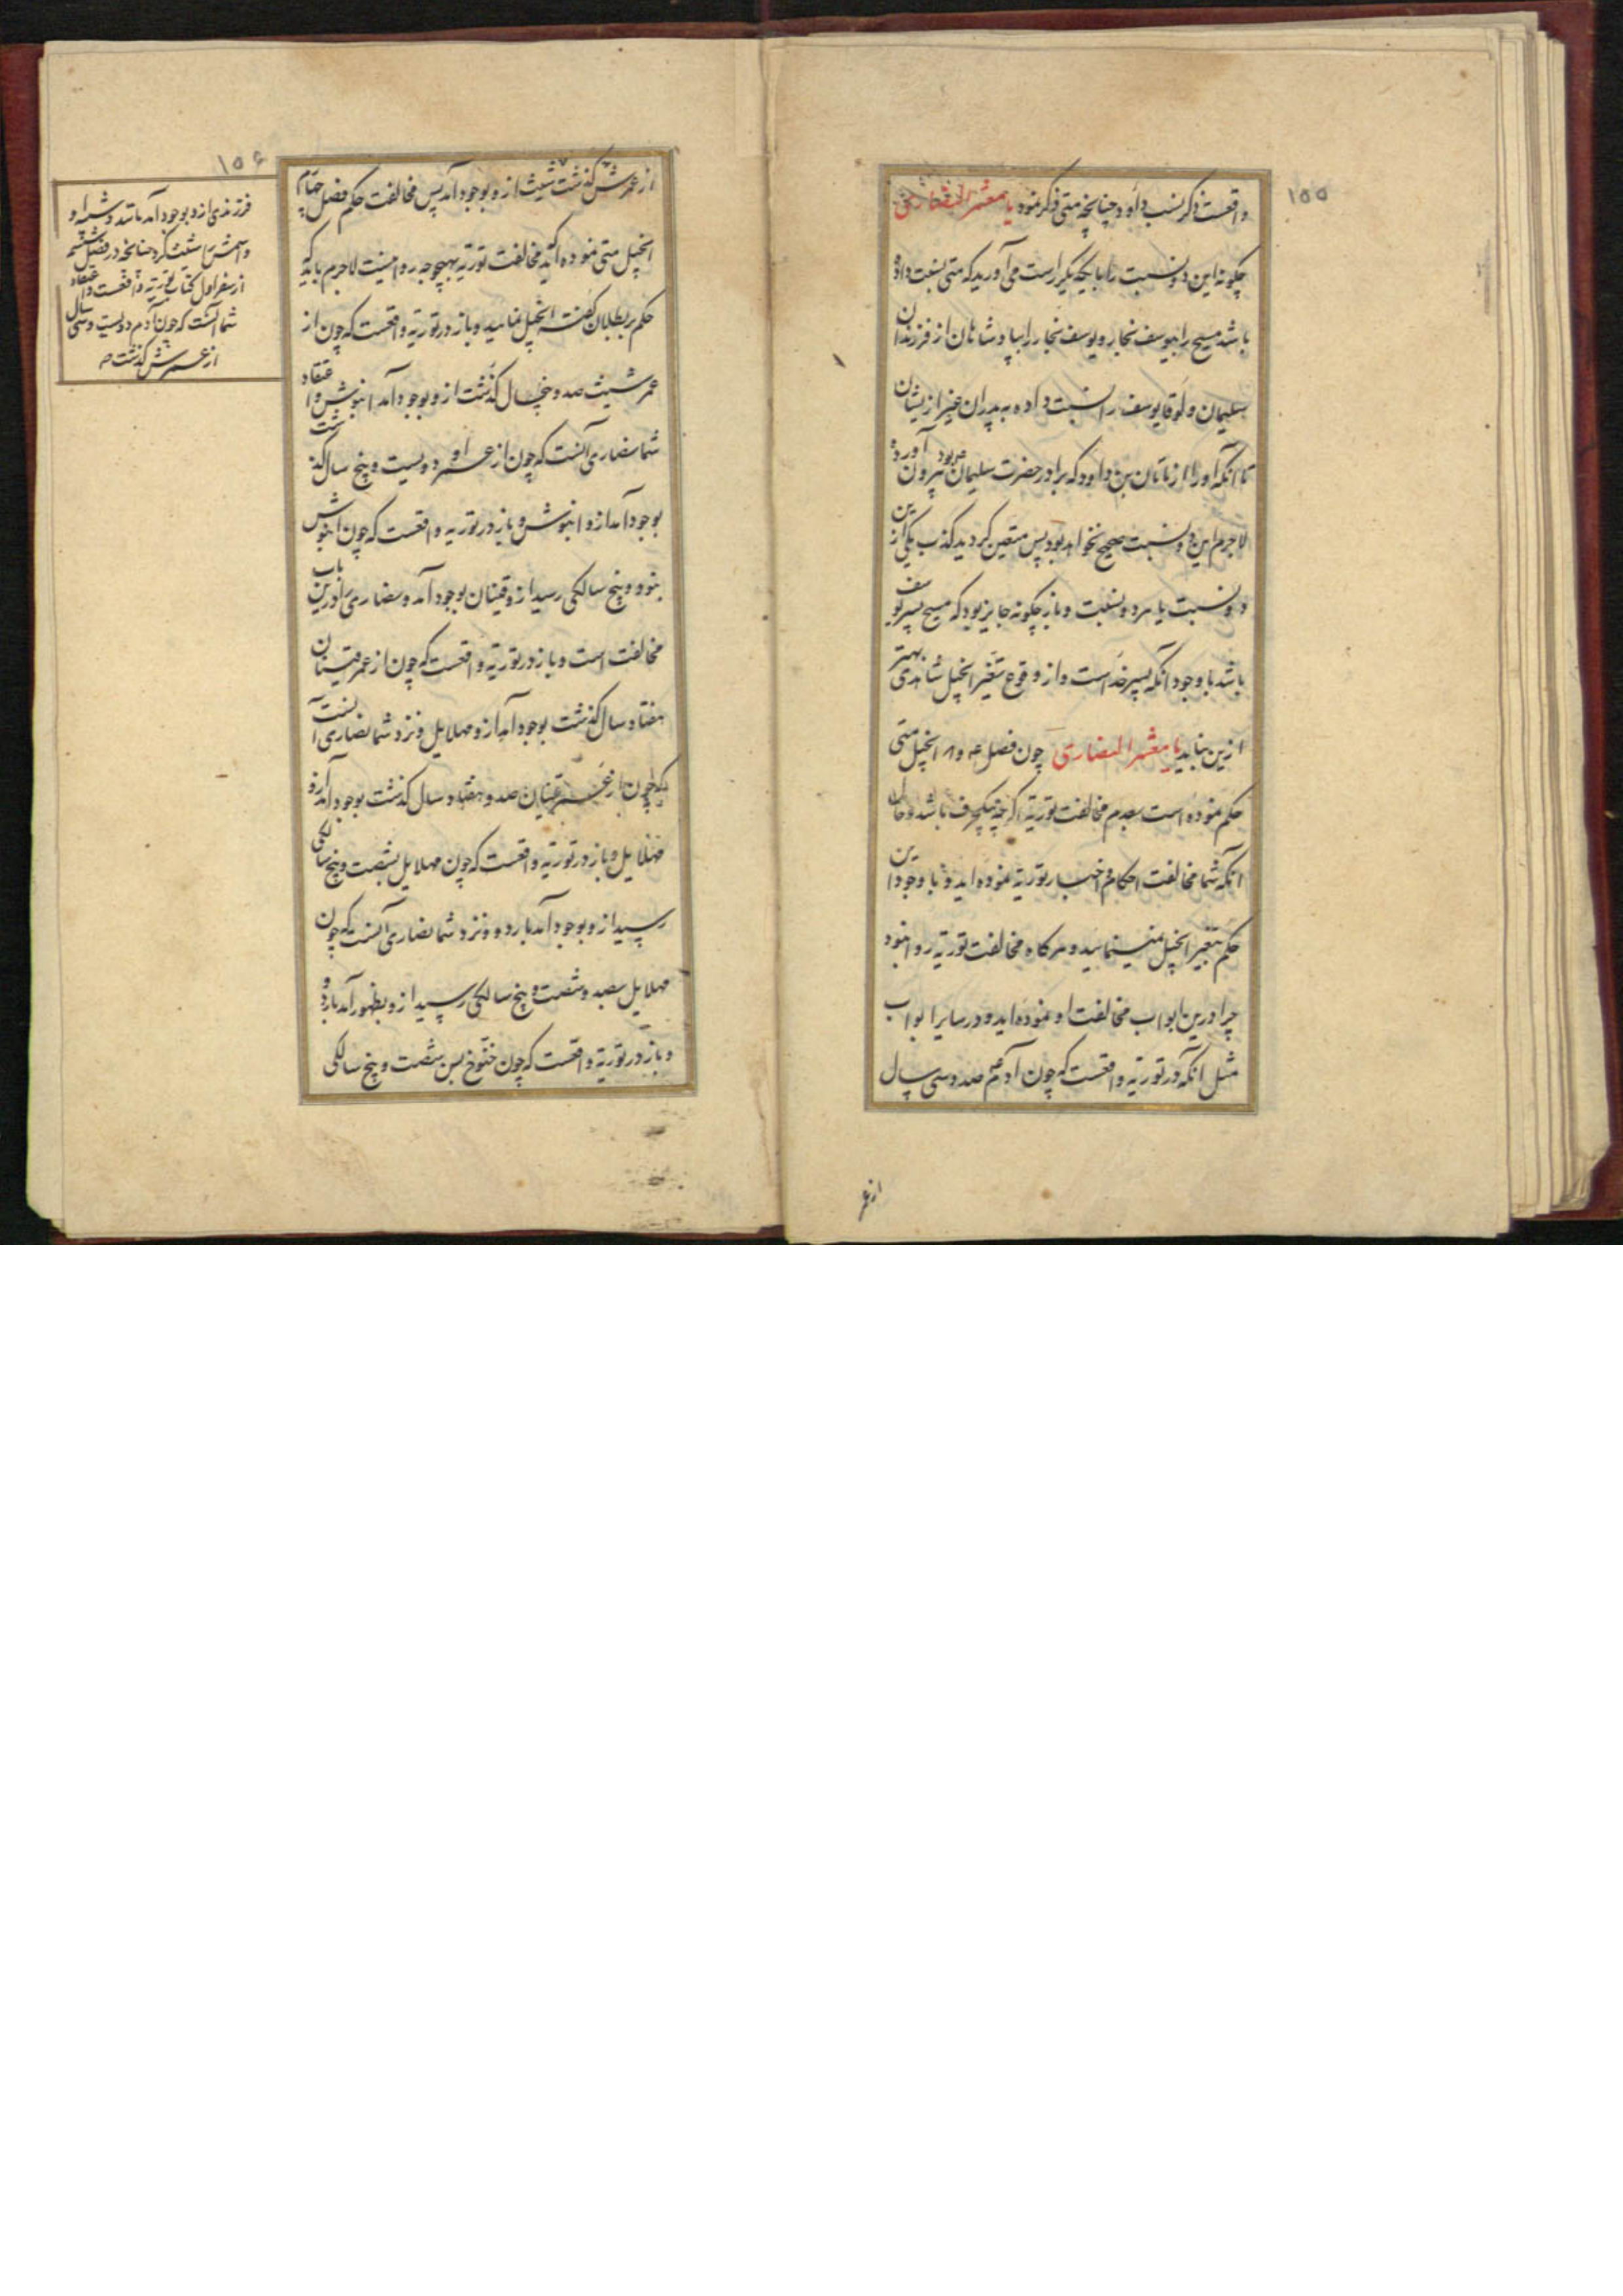 ۱۵۵
واقعست ذکر نسب داود چنانچه متی ذکر نمود یا معشر النصاری
چگونه این دو نسبت را با یکدیگر راست می آورید که متی نسبت داده
باشد مسیح را بیوسف نجار و یوسف نجار را بپادشاهان از فرزندان
سلیمان و لوقا یوسف را نسبت داده به پدران غیر ازیشان
تا آنکه او را از ناتان بن داود که برادر حضرت سلیمان بود بیرون آورده
لاجرم این دو نسبت صحیح نخواهد بود پس متعین گردید کذب یکی از این
دو نسبت یا هر دو نسبت و باز چگونه جایز بود که مسیح پسر یوسف
باشد با وجود آنکه پسر خداست و از وقوع تغییر انجیل شاهدی بهتر
ازین نباید یا معشر النصاری چون فصل ۴ و ۸ انجیل متی
حکم نموده است بعدم مخالفت توریة اگرچه یکحرف باشد و حال
آنکه شما مخالفت احکام و اخبار توریة نموده اید و با وجود این
حکم بتغییر انجیل نمینمایید و هرگاه مخالفت توریة روا نبود
چرا درین ابواب مخالفت او نموده اید و در سایر ابواب
مثل آنکه در توریة واقعست که چون آدم صد و سی سال
از عمر
۱۵۶
از عمرش گذشت شیث ازو بوجود آمد پس مخالفت حکم فصل چهارم
انجیل متی نموده اید مخالفت توریة بهیچوجه روا نیست لاجرم باید که
حکم ببطلان گفته انجیل نمایید و باز در توریة واقعست که چون از
عمر شیث صد و پنجسال گذشت ازو بوجود آمد انوش و اعتقاد
شما نصاری آنست که چون از عمر او دویست و پنج سال گذشت
بوجود آمد ازو انوش و باز در توریة واقعست که چون انوش
بنود و پنج سالگی رسید ازو قینان بوجود آمد و نصاری را درین باب
مخالفت است و باز در توریة واقعست که چون از عمر قینان
هفتاد سال گذشت بوجود آمد ازو مهلایل و نزد شما نصاری آنست
که چون از عمر قینان صد و هفتاد سال گذشت بوجود آمد ازو
مهلایل و باز در توریة واقعست که چون مهلایل بشصت و پنج سالگی
رسید ازو بوجود آمد یارد و نزد شما نصاری آنست که چون
مهلایل بصد و شصت و پنج سالگی رسید ازو بظهور آمد یارد و
و باز در توریة واقعست که چون خنوخ بسن شصت و پنج سالگی
فرزندی ازو بوجود آمد مانند و شبیه او و
و اسمش را شیث کرد چنانچه در فصل ششم
از سفر اول کتاب توریة واقعست و اعتقاد
شما آنست که چون آدم دویست و سی سال
از عمرش گذشت